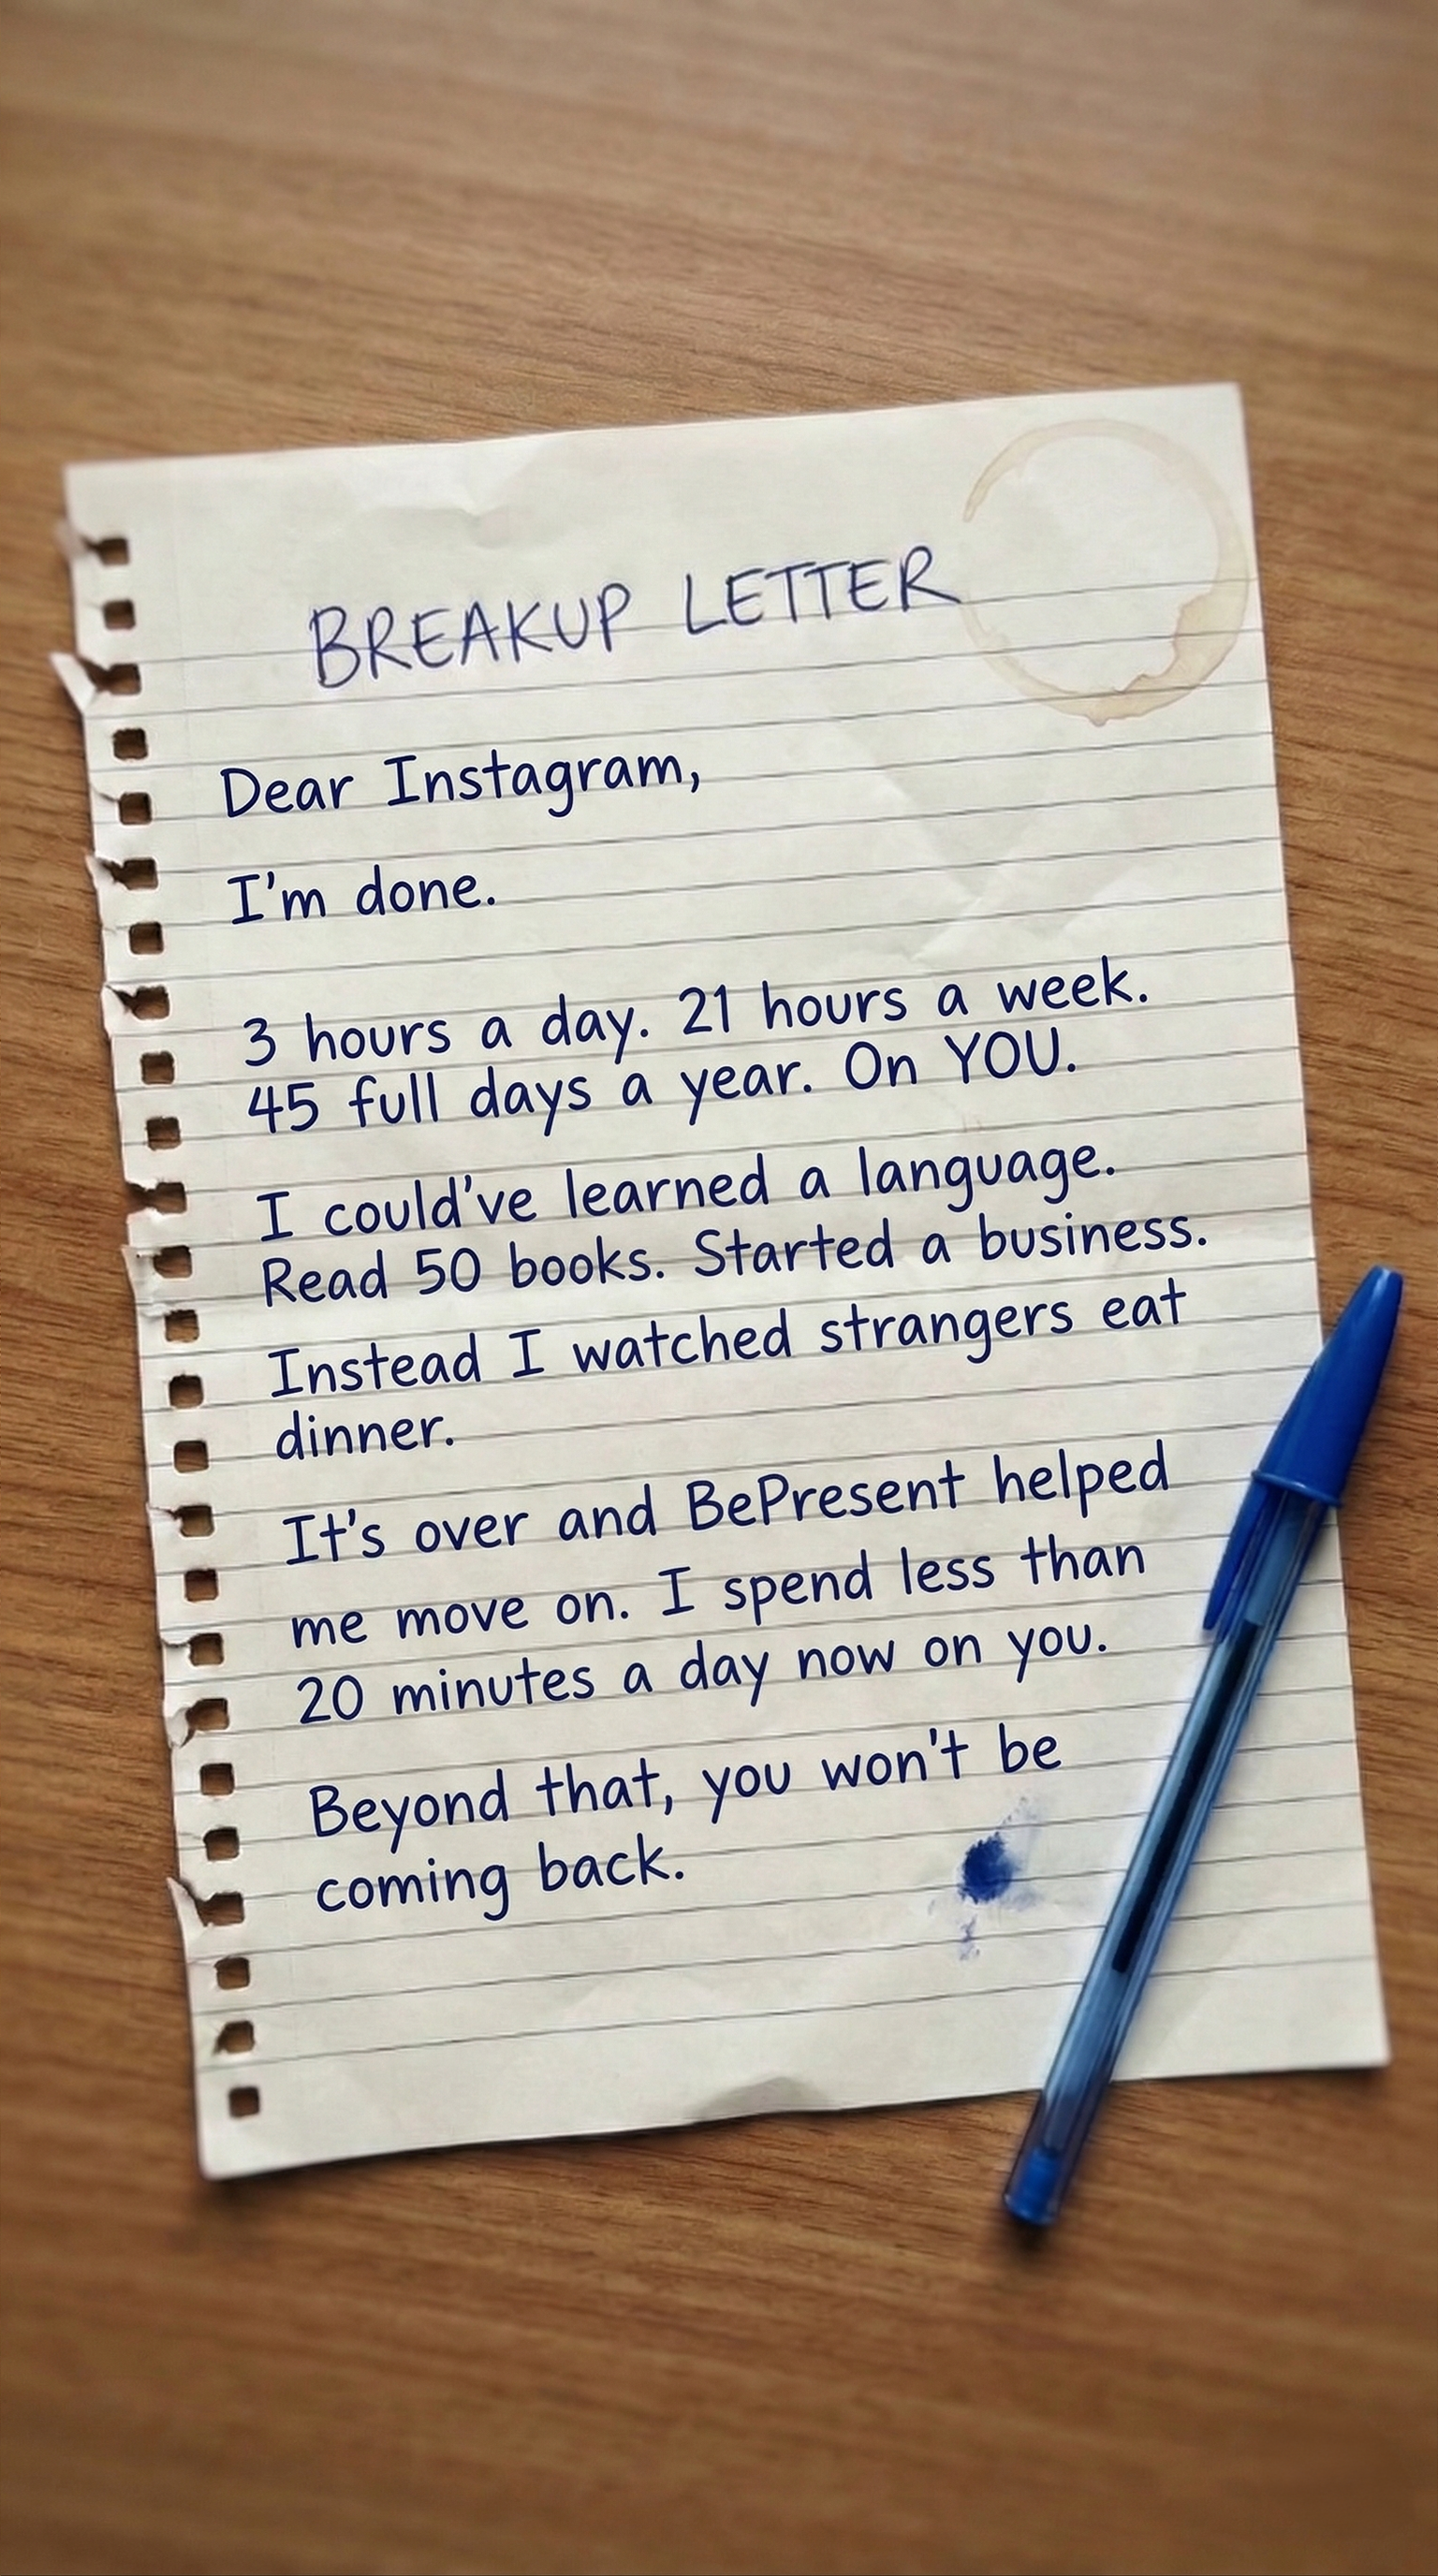 BREAKUP LETTER
Dear Instagram,
I'm done.
3 hours a day. 21 hours a week.
45 full days a year. On YOU.
I could've learned a language.
Read 50 books. Started a business.
Instead I watched strangers eat
dinner.
It's over and BePresent helped
me move on. I spend less than
20 minutes a day now on you.
Beyond that, you won't be
coming back.